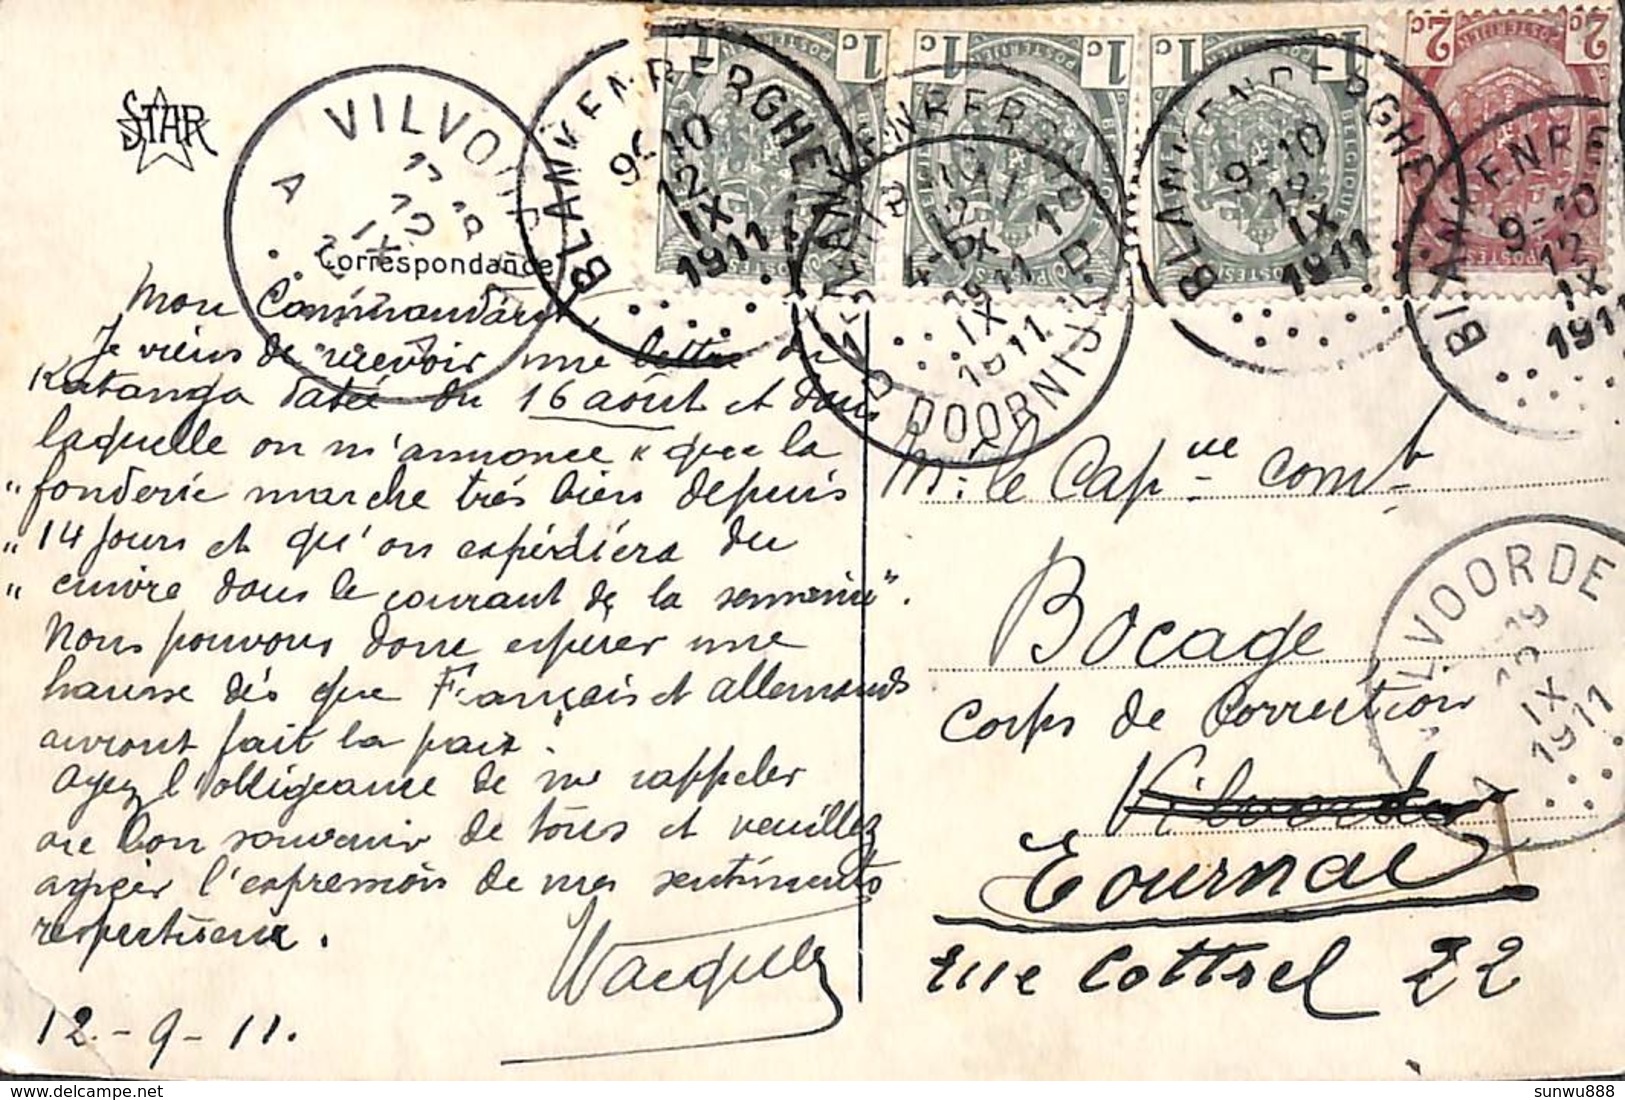 STAR
Correspondance
VILVORDE
A
IX
1c 1c
1c 1c
1c 1c
2c 2c
BELGIQUE
POSTES
BLANKENBERGHE
12
IX
1911
BLANKENBERGHE
IX
1911
BLANKENBERGHE
9-10
12
IX
1911
BLANKENBERGHE
9-10
12
IX
1911
DOORNIJK
IX
1911
Mon Commandant,
Je viens de recevoir une lettre du
Katanga datée du 16 août et dans
laquelle on m'annonce "que la
" fonderie marche très bien depuis
" 14 jours et qu'on expédiera du
" cuivre dans le courant de la semaine".
Nous pouvons donc espérer une
hausse dès que Français et Allemands
auront fait la paix.
Ayez l'obligeance de me rappeler
au bon souvenir de tous et veuillez
agréer l'expression de mes sentiments
respectueux.
Wacquez
12-9-11.
M: le Capne Comt
Bocage
Corps de Correction
Vilvorde
Tournai
rue Cottrel 22
VILVOORDE
IX
1911
delcampe.net
sunwu888